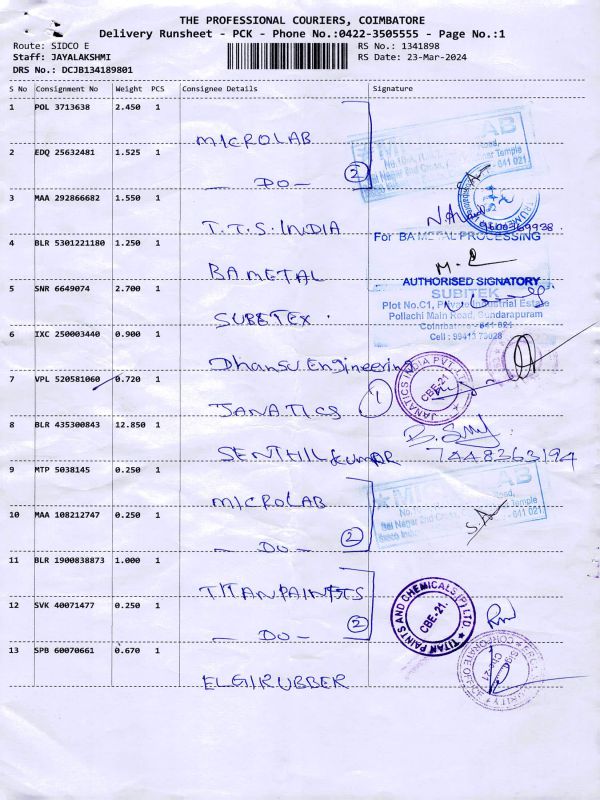 THE PROFESSIONAL COURIERS, COIMBATORE
Delivery Runsheet - PCK - Phone No.:0422-3505555 - Page No.:1
Route: SIDCO E
RS No.: 1341898
Staff: JAYALAKSHMI
RS Date: 23-Mar-2024
DRS No.: DCJB134189801
S No Consignment No Weight PCS Consignee Details Signature
1 POL 3713638 2.450 1
MICROLAB
2 EDQ 25632481 1.525 1
- DO - 2
3 MAA 292866682 1.550 1
T.T.S. INDIA
4 BLR 5301221180 1.250 1
For BA METAL PROCESSING
BAMETAL
AUTHORISED SIGNATORY
5 SNR 6649074 2.700 1
SUBITEK
Plot No.C1, Private Industrial Estate
Pollachi Main Road, Sundarapuram
Coimbatore - 641 021
Cell : 99413 75028
SUBETEX.
6 IXC 250003440 0.900 1
Dhansu Engineering
7 VPL 520581060 0.720 1
JANATICS 1
JANATICS INDIA PVT. LTD
CBE-21
8 BLR 435300843 12.850 1
SENTHIL Kumar 7448263194
9 MTP 5038145 0.250 1
MICROLAB
10 MAA 108212747 0.250 1
- DO - 2
11 BLR 1900838873 1.000 1
TITAN PAINTS
TITAN PAINTS AND CHEMICALS (P) LTD.
CBE-21.
12 SVK 40071477 0.250 1
- DO - 2
13 SPB 60070661 0.670 1
ELGIRUBBER